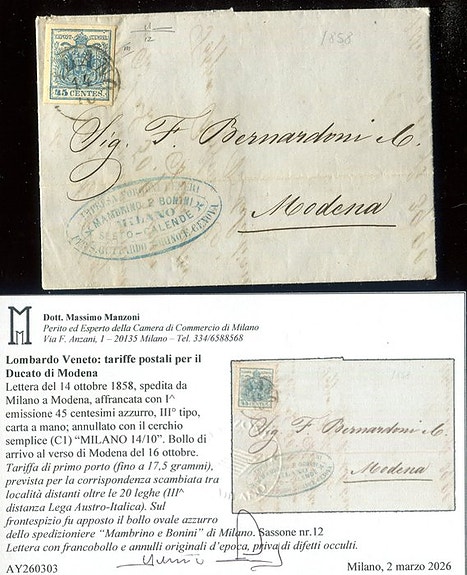 11
12
1858
45 CENTES.
Sig. F. Bernardoni C.
Modena
MAMBRINO E BONINI
MILANO
SESTO-CALENDE
Dott. Massimo Manzoni
Perito ed Esperto della Camera di Commercio di Milano
Via F. Anzani, 1 – 20135 Milano – Tel. 334/6588568
Lombardo Veneto: tariffe postali per il
Ducato di Modena
Lettera del 14 ottobre 1858, spedita da
Milano a Modena, affrancata con I^
emissione 45 centesimi azzurro, III° tipo,
carta a mano; annullato con il cerchio
semplice (C1) “MILANO 14/10”. Bollo di
arrivo al verso di Modena del 16 ottobre.
Tariffa di primo porto (fino a 17,5 grammi),
prevista per la corrispondenza scambiata tra
località distanti oltre le 20 leghe (III^
distanza Lega Austro-Italica). Sul
frontespizio fu apposto il bollo ovale azzurro
dello spedizioniere “Mambrino e Bonini” di Milano. Sassone nr.12
Lettera con francobollo e annulli originali d’epoca, priva di difetti occulti.
AY260303
Milano, 2 marzo 2026
1858
Sig. F. Bernardoni C.
Modena